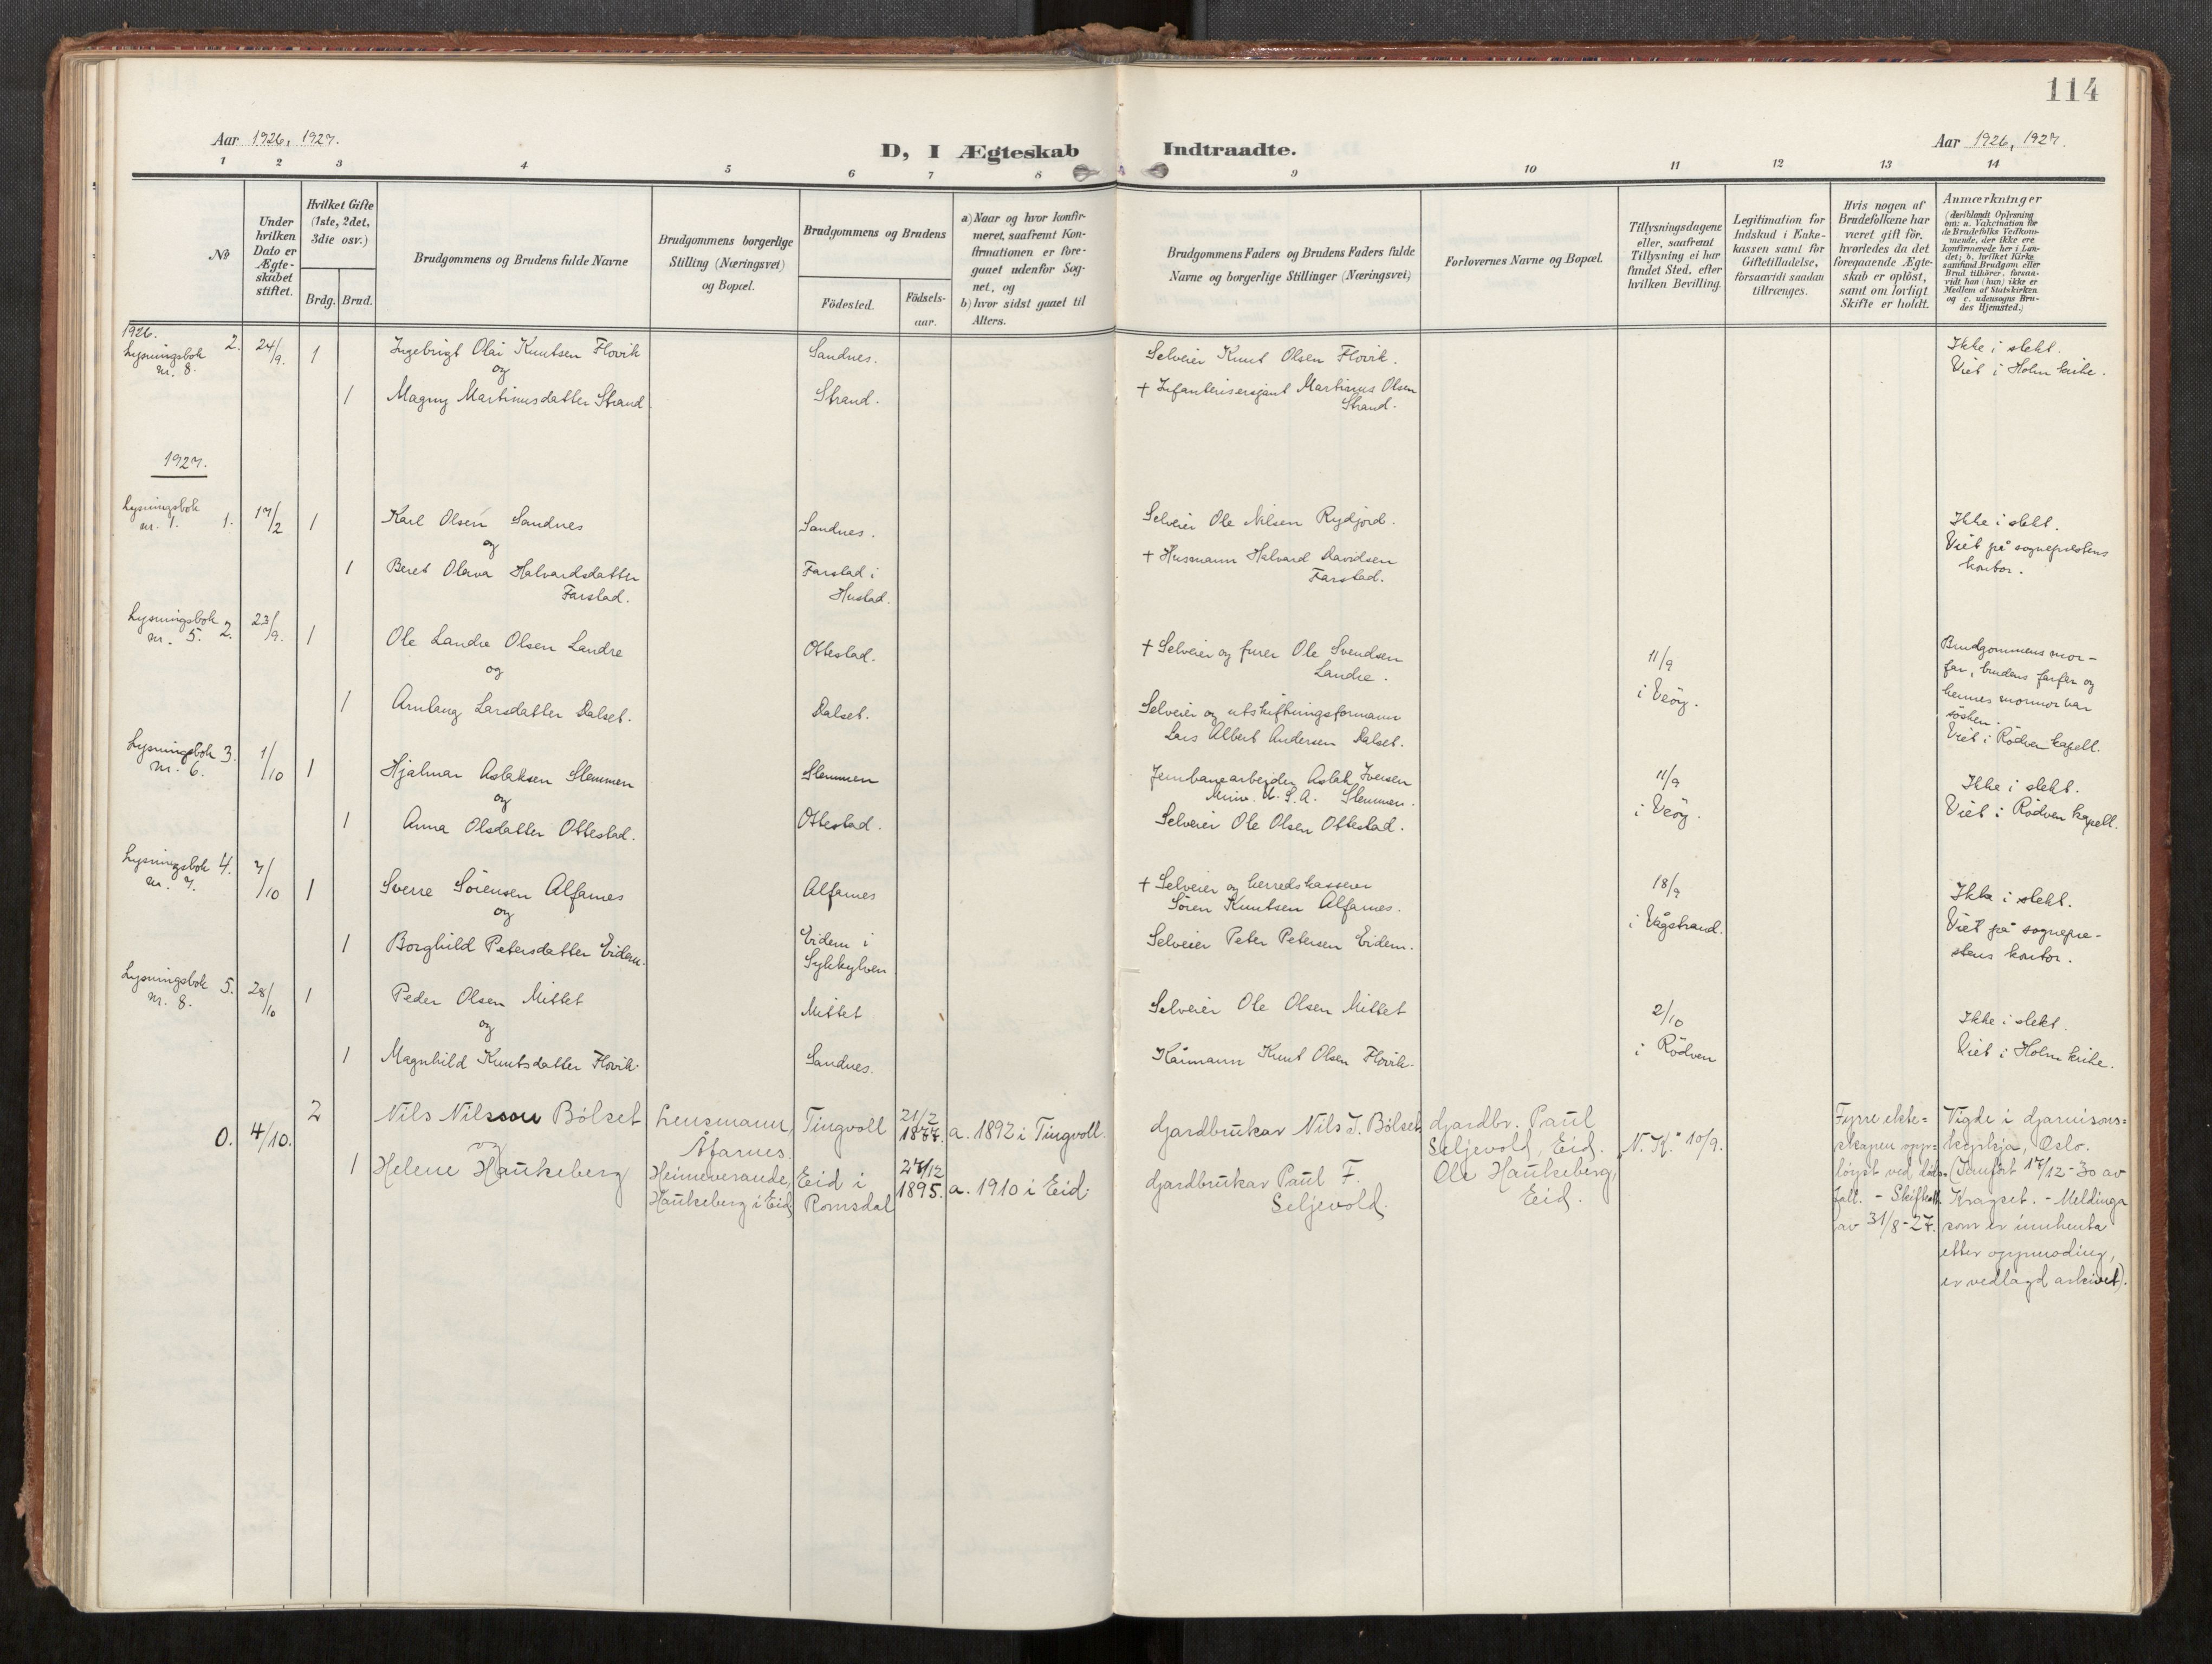 114
Aar 1926, 1927.
D, I Ægteskab Indtraadte.
Aar 1926, 1927.
1 2 3 4 5 6 7 8 9 10 11 12 13 14
No
Under hvilken Dato er Ægte-skabet stiftet.
Hvilket Gifte (1ste, 2det, 3die osv.)
Brdg. Brud.
Brudgommens og Brudens fulde Navne
Brudgommens borgerlige Stilling (Næringsvei) og Bopæl.
Brudgommens og Brudens
Födested.
Födsels-aar.
a) Naar og hvor konfir-meret, saafremt Kon-firmationen er fore-gaaet udenfor Sog-net, og
b) hvor sidst gaaet til Alters.
Brudgommens Faders og Brudens Faders fulde Navne og borgerlige Stillinger (Næringsvei)
Forlovernes Navne og Bopæl.
Tillysningsdagene eller, saafremt Tillysning ei har fundet Sted, efter hvilken Bevilling.
Legitimation for Indskud i Enke-kassen samt for Giftetilladelse, forsaavidt saadan tiltrænges.
Hvis nogen af Brudefolkene har været gift för, hvorledes da det foregaaende Ægte-skab er oplöst, samt om lovligt Skifte er holdt.
Anmærkninger
(deriblandt Oplysning om: a. Vakcination for de Brudefolks Vedkom-mende, der ikke ere konfirmerede her i Lan-det; b. hvilket Kirke-samfund Brudgom eller Brud tilhörer, forsaa-vidt han (hun) ikke er Medlem af Statskirken og c. udensogns Bru-des Hjemsted.)
1926.
Lysningsbok nr. 8. 2. 24/9. 1 Ingebrigt Olai Knutsen Flovik Sandnes. Selveier Knut Olsen Flovik. Ikke i slekt.
og Viet i Holm kirke.
1 Magny Martinusdatter Strand Strand. + Infanterisersjant Martinus Olsen
Strand.
1927.
Lysningsbok nr. 1. 1. 17/2 1 Karl Olsen Sandnes Sandnes. Selveier Ole Nilsen Rydjord. Ikke i slekt.
og Viet på sogneprestens
1 Beret Olava Halvardsdatter Farstad i + Husmann Halvard Davidsen kontor.
Farstad. Hustad. Farstad.
Lysningsbok nr. 5. 2. 23/9. 1 Ole Landre Olsen Landre Ottestad. + Selveier og furer Ole Svendsen 11/9 Brudgommens mor-
og Landre. i Veöy. far, brudens farfar og
1 Arnlaug Larsdatter Dalset. Dalset. Selveier og utskiftningsformann hennes mormor var
Lars Albert Andersen Dalset. sösken.
Viet i Rödven kapell.
Lysningsbok nr. 6. 3. 1/10 1 Hjalmar Aslaksen Slemmen Slemmen Jernbanearbeider Aslak Iversen 11/9 Ikke i slekt.
og Minn. U.S.A. Slemmen. i Veöy. Viet i Rödven kapell.
1 Anna Olsdatter Ottestad. Ottestad. Selveier Ole Olsen Ottestad.
Lysningsbok nr. 7. 4. 7/10 1 Sverre Sörensen Alfarnes Alfarnes + Selveier og herredskasserer 18/9 Ikke i slekt.
og Sören Knutsen Alfarnes. i Vågstrand. Viet på sognepre-
1 Borghild Petersdatter Eidem. Eidem i Selveier Peter Petersen Eidem. stens kontor.
Sykkylven
Lysningsbok nr. 8. 5. 28/10 1 Peder Olsen Mittet Mittet Selveier Ole Olsen Mittet 2/10 Ikke i slekt.
og i Rödven Viet i Holm kirke.
1 Magnhild Knutsdatter Flovik. Sandnes. Kårmann Knut Olsen Flovik.
0. 4/10. 2 Nils Nilsson Bölset Lensmann, Tingvoll 21/2 1877. a. 1892 i Tingvoll. Gardbrukar Nils J. Bölset Gardbr. Paul N. K. 10/9. Fyrre ekte= Vigde i Garnisons=
og Åfarnes. Seljevold, Eid. skapen opp= kyrkja, Oslo.
1 Helene Haukeberg Heimeverande, Eid i 27/12 1895. a. 1910 i Eid. Gardbrukar Paul F. Ole Haukeberg, löyst ved döds= (Innfört 17/12-30 av
Haukeberg i Eid Romsdal Seljevold. Eid. fall. - Skifteatt. Kragset. - Meldinga
av 31/8-27. som er innhenta
etter oppmoding,
er vedlagd arkivet).